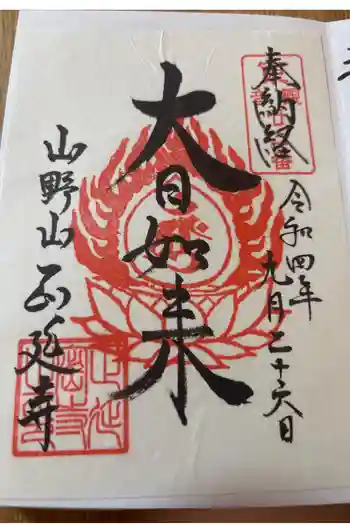 奉納経
令和四年九月二十六日
大日如来
山野山正延寺